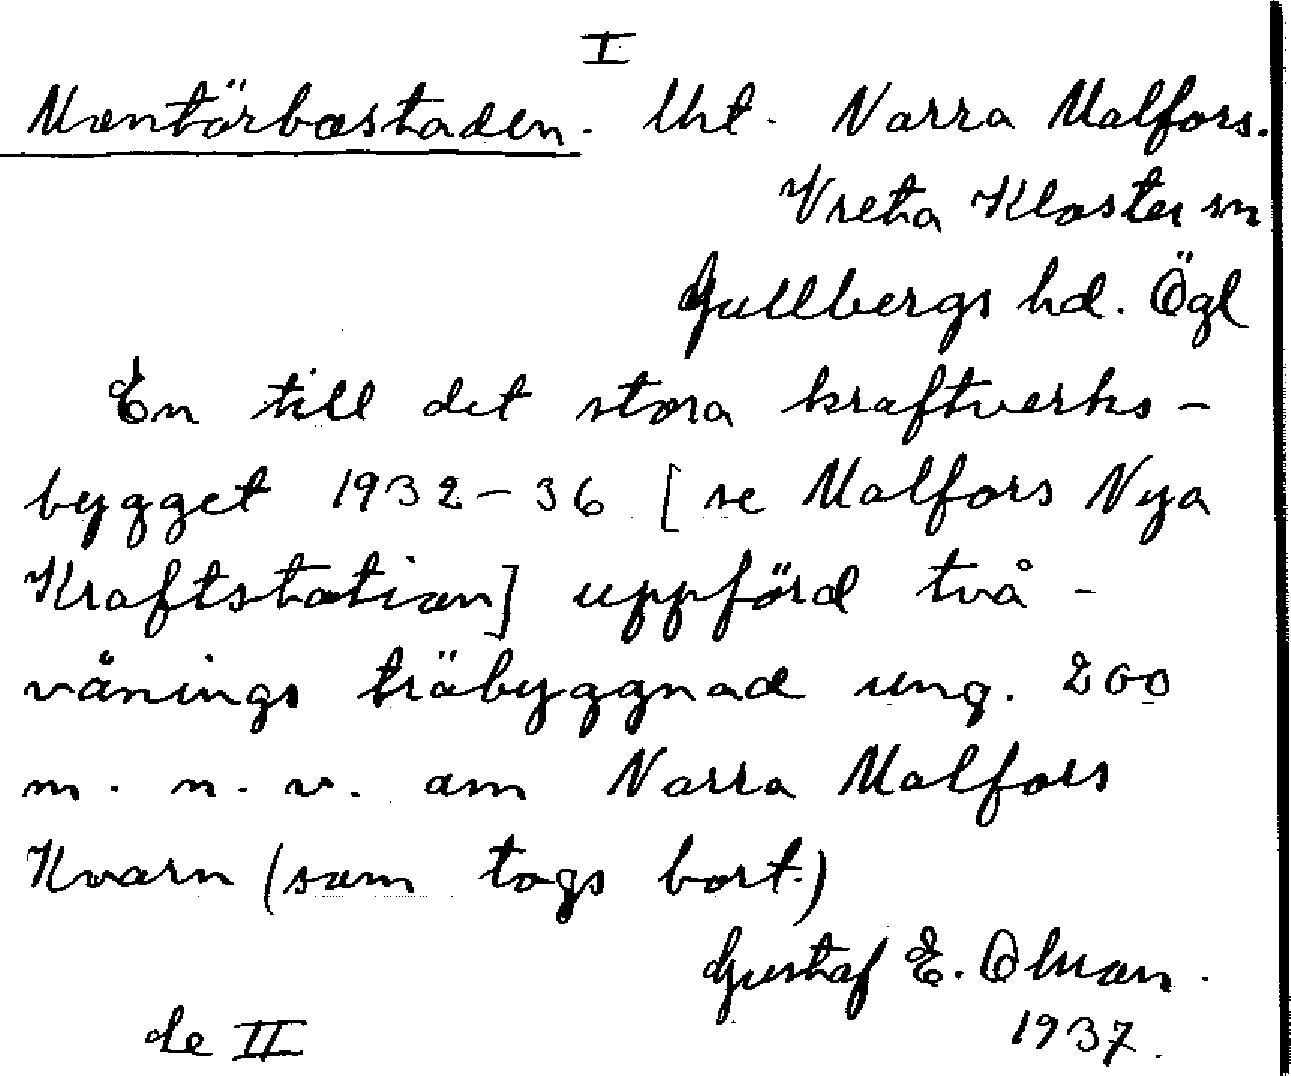 I
Montörbostaden. Urt. Norra Malfors.
Vreta Kloster sn
Gullbergs hd. Ögl
En till det stora kraftverks-
bygget 1932-36 [se Malfors Nya
Kraftstation] uppförd två-
vånings träbyggnad ung. 200
m. n. v. om Norra Malfors
Kvarn (som togs bort.)
Gustaf E. Olman.
1937.
de II